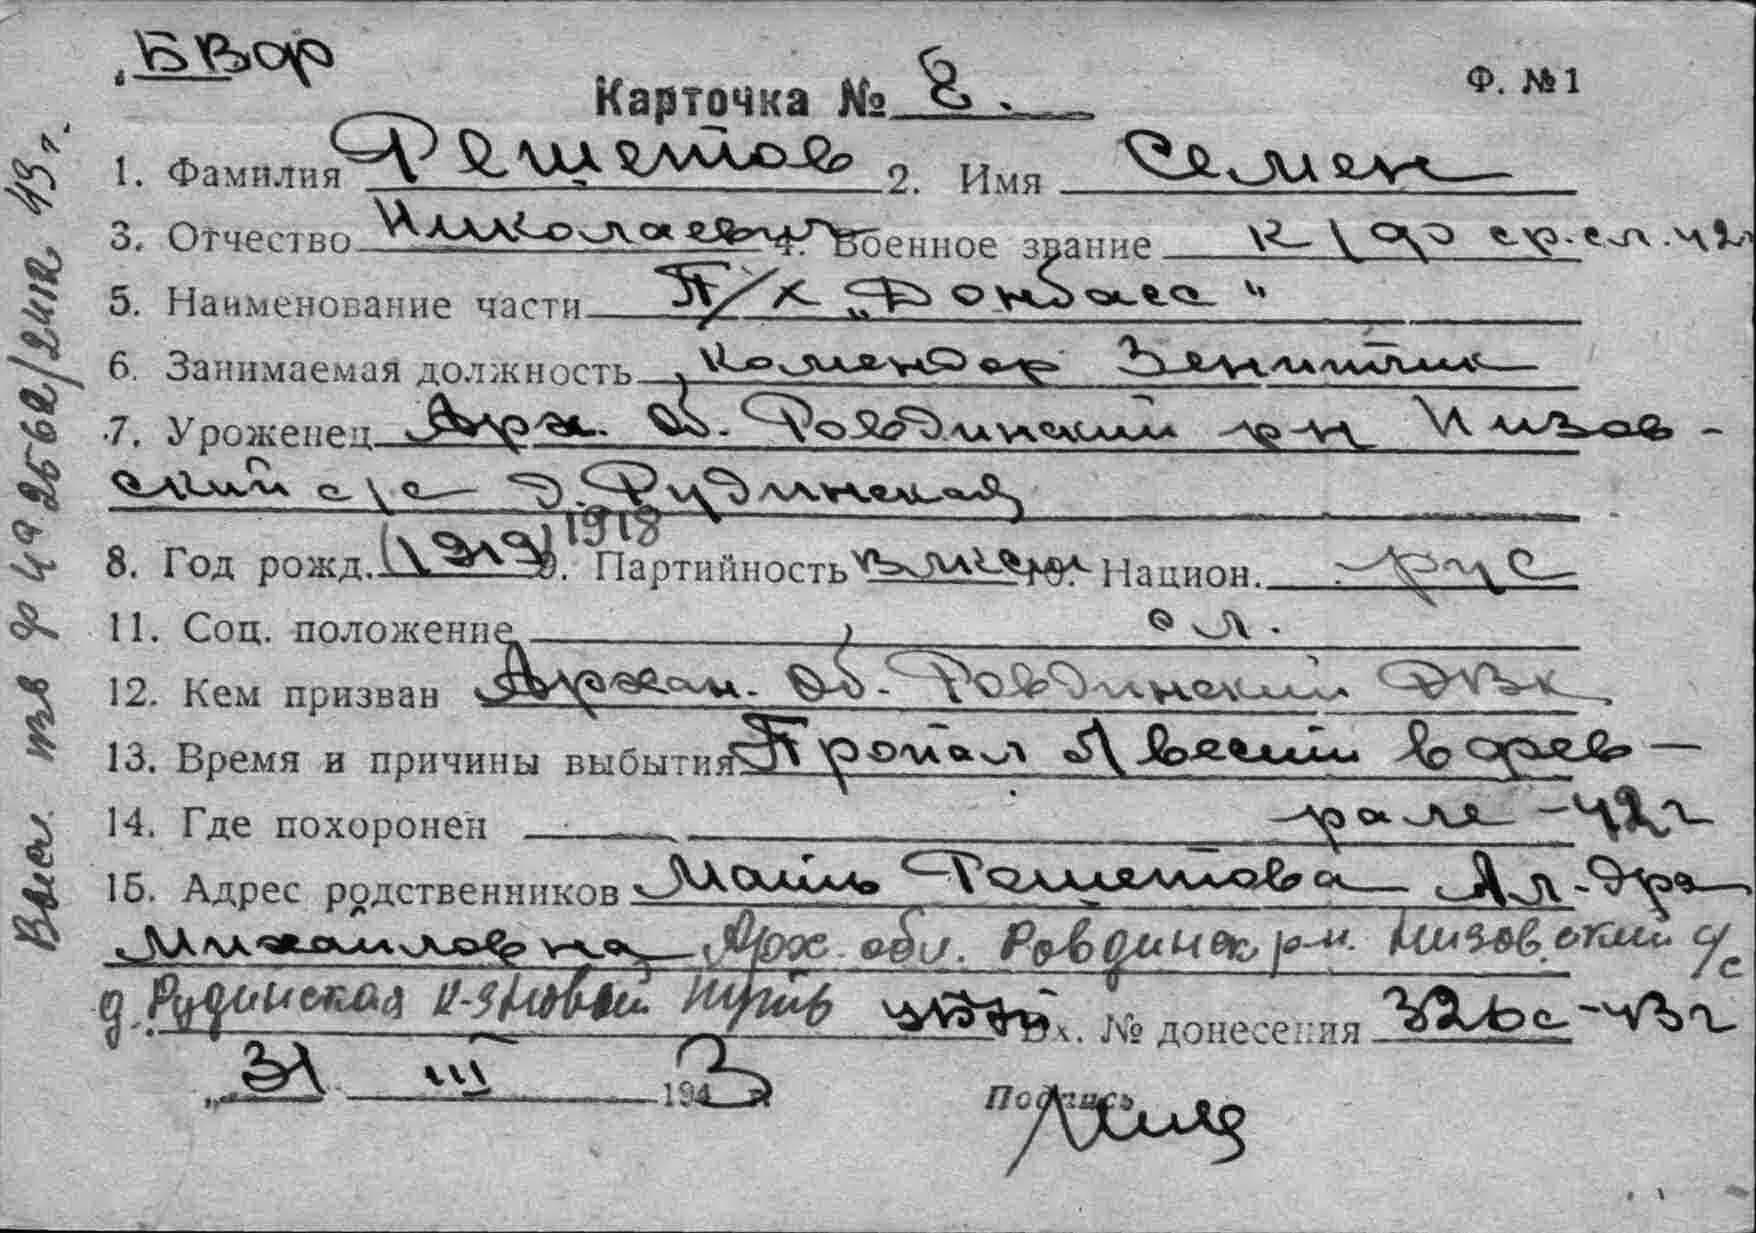 БВФ
Карточка № 8.
Ф. №1
1. Фамилия Решетов 2. Имя Семен
3. Отчество Николаевич 4. Военное звание к/ф ср.сл.42
5. Наименование части П/х „Донбасс"
6. Занимаемая должность комендор зенитчик
7. Уроженец Арх. об. Ровдинский рн Низов-
ский с/с д. Рудинская
8. Год рожд. (1919) 1918 9. Партийность ВЛКСМ 10. Национ. рус
11. Соц. положение сл.
12. Кем призван Архан. об. Ровдинский РВК
13. Время и причины выбытия Пропал б/вести в фев-
рале -42г
14. Где похоронен
15. Адрес родственников Мать Решетова Ал-дра
Михайловна Арх. обл. Ровдинск рн. Низовский с/с
д. Рудинская к-з Новый путь Вх. № донесения 326с-43г
„31 III 1943
Подпись
Высл. изв ф 4а 2562/24пк 43 г.